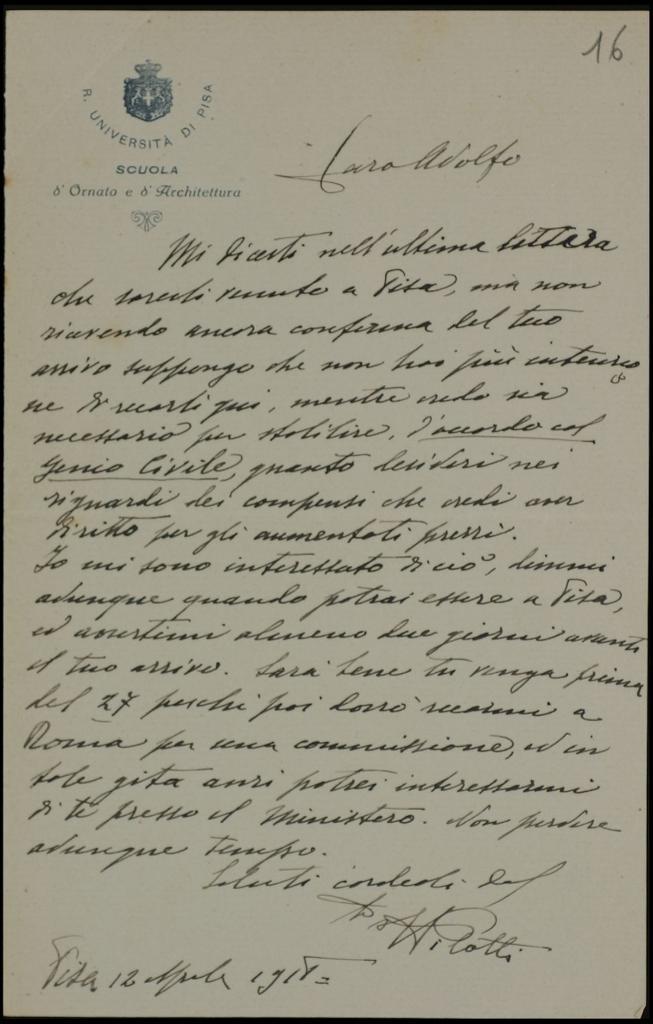 16
R. UNIVERSITÀ DI PISA
SCUOLA
d'Ornato e d'Architettura
Caro Adolfo
Mi dicesti nell'ultima lettera
che saresti venuto a Pisa, ma non
ricevendo ancora conferma del tuo
arrivo suppongo che non hai più intenzio
ne di recarti qui, mentre credo sia
necessario per stabilire, d'accordo col
Genio Civile, quanto desideri nei
riguardi dei compensi che credi aver
diritto per gli aumentati prezzi.
Io mi sono interessato di ciò, dimmi
adunque quando potrai essere a Pisa,
ed avvertimi almeno due giorni avanti
il tuo arrivo. Sarà bene tu venga prima
del 27 perchè poi dovrò recarmi a
Roma per una commissione, ed in
tale gita anzi potrei interessarmi
di te presso il Ministero. Non perdere
adunque tempo.
Saluti cordiali dal
Pilotti
Pisa 12 Aprile